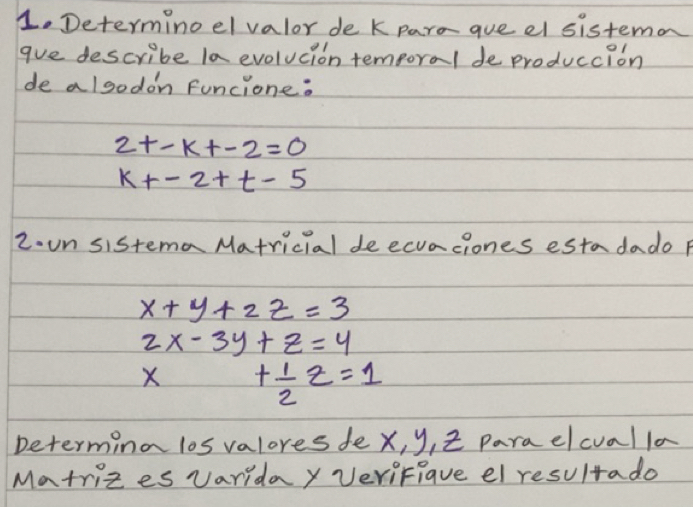 1. Determino el valor de K para que el sistema
que describe la evolución temporal de producción
de algodón funcione:
2t-kt-2=0
kt-2t+t-5
2. un sistema Matricial de ecuaciones esta dado
x+y+2z=3
2x-3y+z=4
x +1/2 z=1
Determina los valores de x, y, z para el cual la
Matriz es varida y verifique el resultado